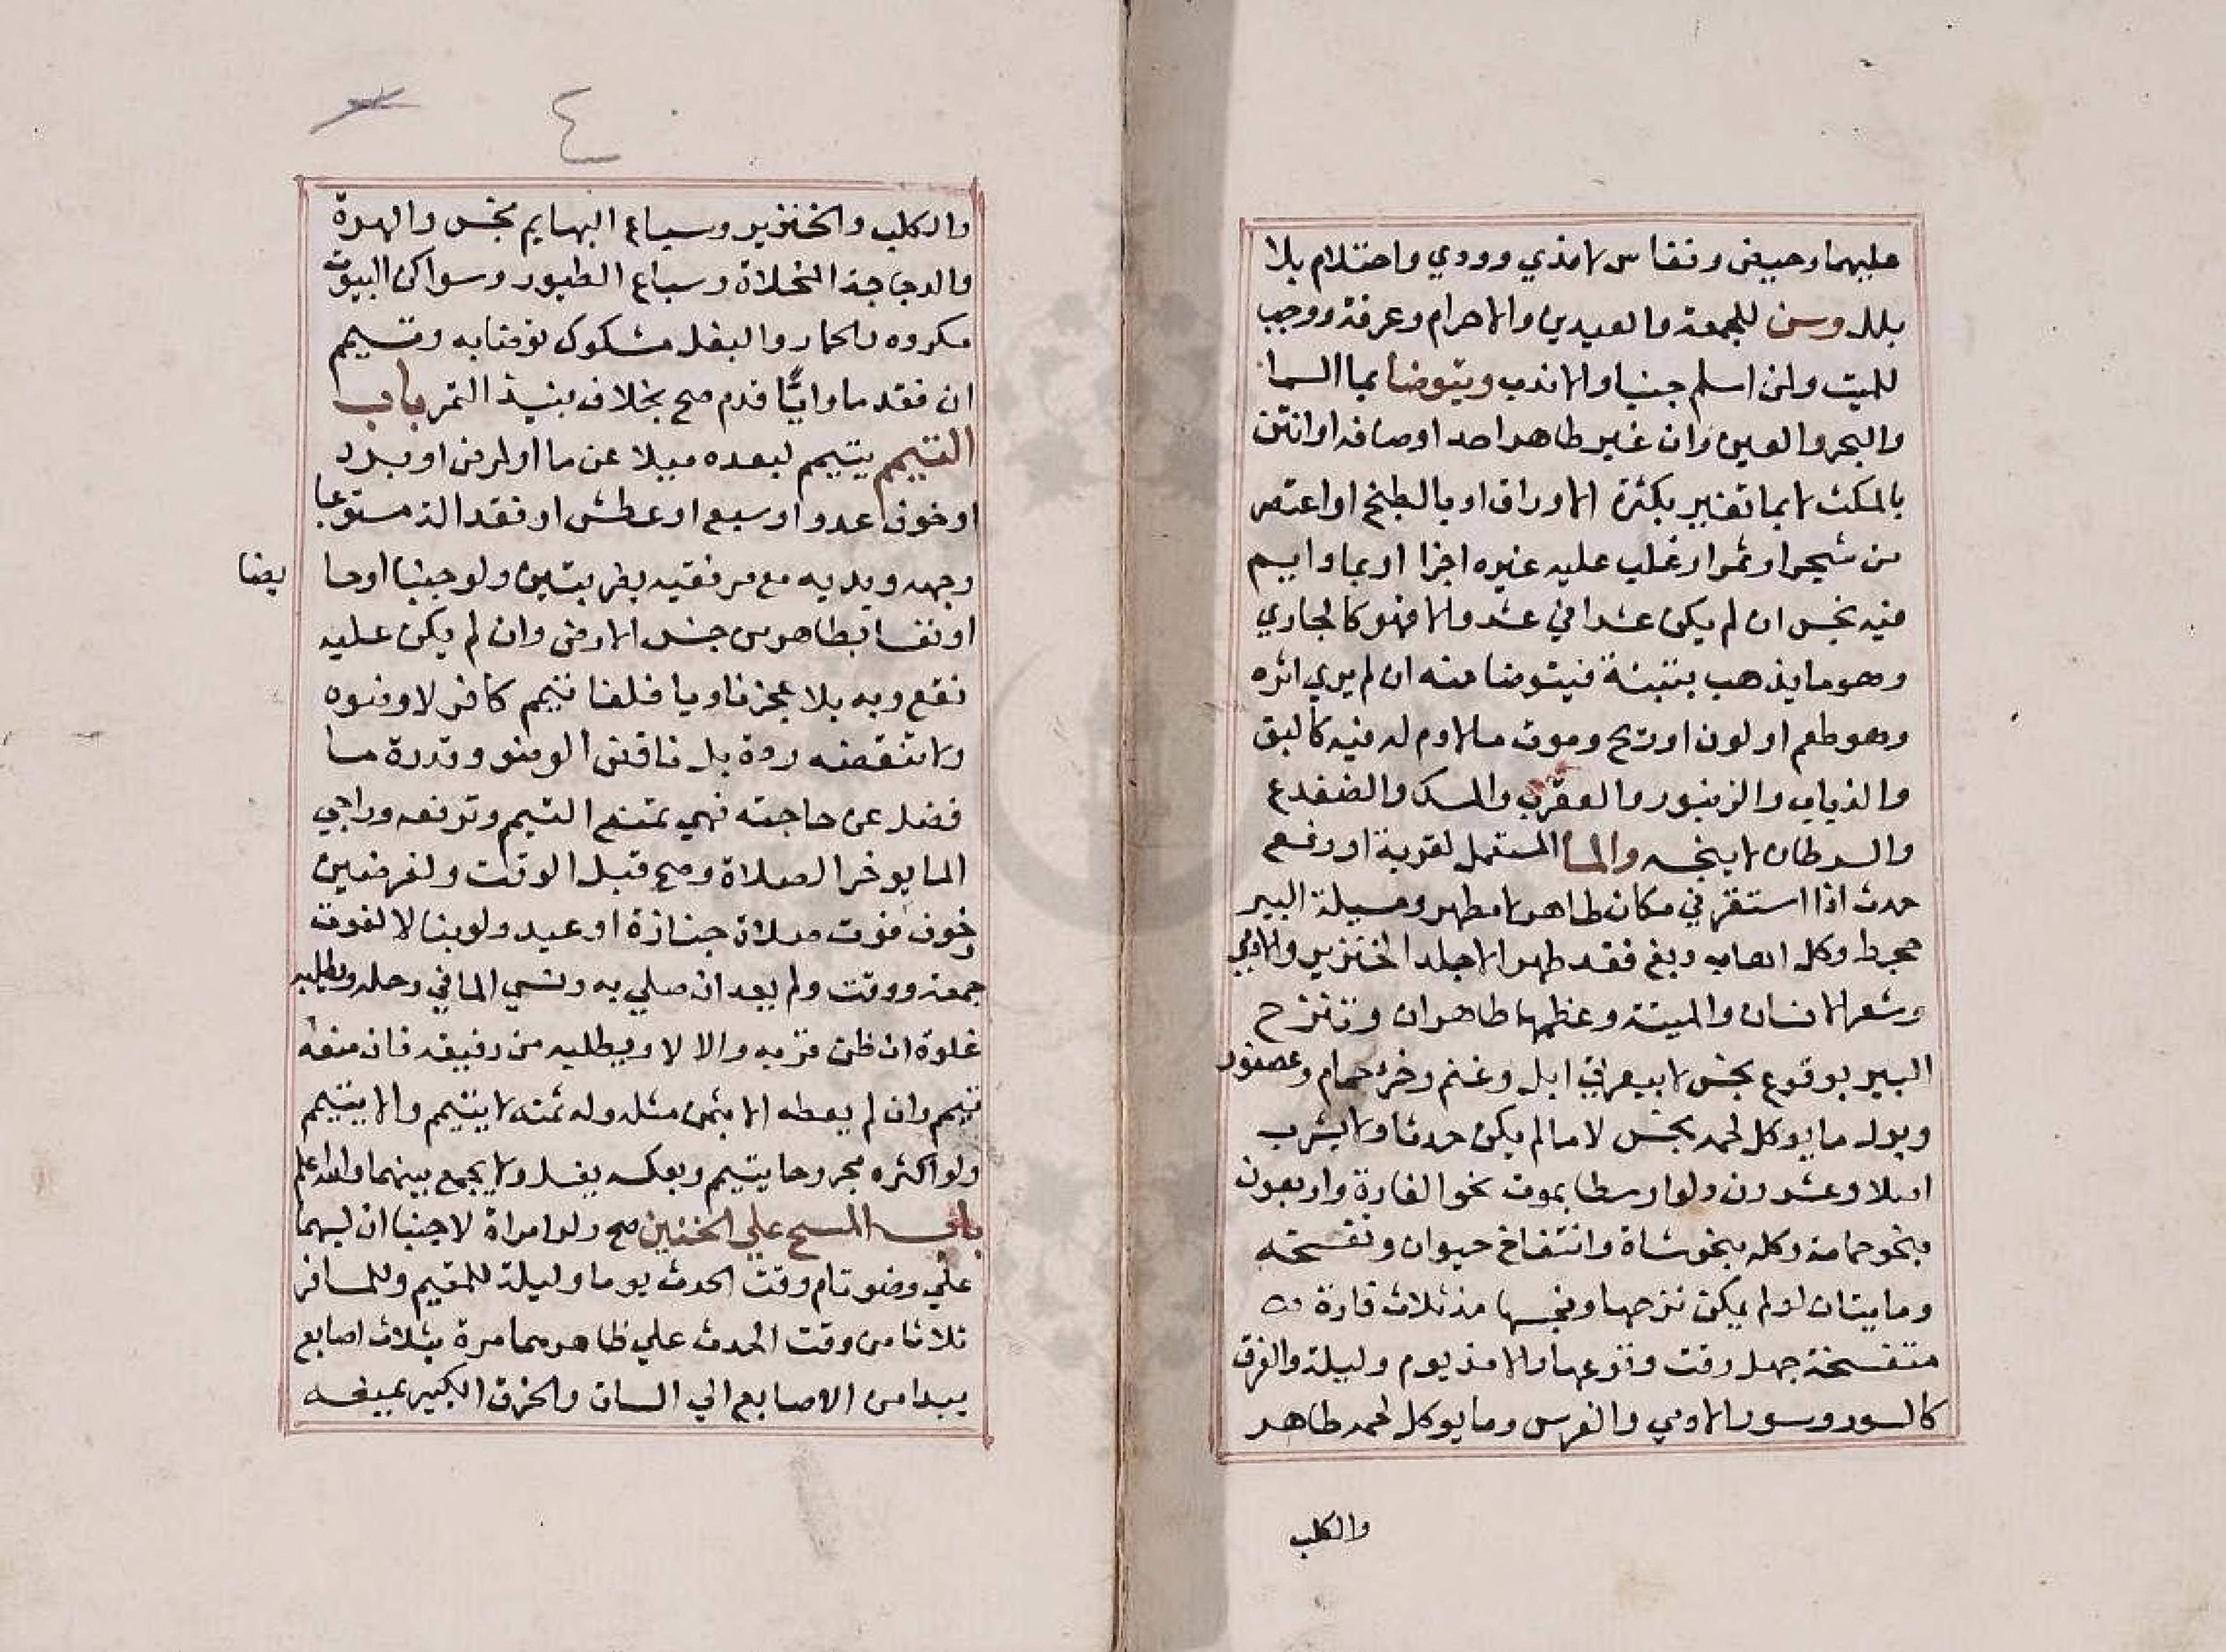 عليهما وحيض ونفاس لا مذي وودي واحتلام بلا
بلل وسن للجمعة والعيدين والاحرام وعرفة ووجب
للميت ولمن اسلم جنبا والا ندب ويتوضا بما السما
والبحر والعين وان غير طاهر احد اوصافه او انتن
بالمكث لا بما تغير بكثرة الاوراق او بالطبخ او اعتصر
من شجر او ثمر او غلب عليه غيره اجزا او بما دايم
فيه نجس ان لم يكن عشرا في عشر والا فهو كالجاري
وهو ما يذهب بتبنة فيتوضا منه ان لم يري اثره
وهو طعم او لون او ريح وموت ما لا دم له فيه كالبق
والذباب والزنبور والعقرب والسمك والضفدع
والسرطان لا ينجسه والما المستعمل لقربة او رفع
حدث اذا استقر في مكان طاهر لا مطهر ومسيلة البير
جحط وكل اهاب دبغ فقد طهر الا جلد الخنزير والادمي
وشعر الانسان والميتة وعظمها طاهران وتنزح
البير بوقوع نجس لا ببعرتي ابل وغنم وخرء حمام وعصفور
وبول ما يوكل لحمه نجس لا ما لم يكن حدثا ولا يشرب
اصلا وعشرون دلوا وسطا بموت نحو الفارة واربعون
بنحو حمامة وكله بنحو شاة وانتفاخ حيوان وتفسخه
ومايتان لو لم يمكن نزحها ونجسها مذ ثلاث فارة
متفسخة جهل وقت وقوعها والا مذ يوم وليلة والعرق
كالسور وسور الادمي والفرس وما يوكل لحمه طاهر
والكلب
٤
والكلب والخنزير وسباع البهايم نجس والهرة
والدجاجة المخلاة وسباع الطيور وسواكن البيوت
مكروه والحمار والبغل مشكوك توضا به وتيمم
ان فقد ما وايا قدم صح بخلاف نبيذ التمر باب
التيمم يتيمم لبعده ميلا عن ما او لمرض او برد
او خوف عدو او سبع او عطش او فقد الة مستوعبا
وجهه ويديه مع مرفقيه بضربتين ولو جنبا او حا يضا
او نفسا بطاهر من جنس الارض وان لم يكن عليه
نقع وبه بلا عجز ناويا فلغا تيمم كافر لا وضوه
ولا تنقضه ردة بل ناقض الوضو وقدرة ما
فضل عن حاجته فهي تمنع التيمم وترفعه وراجي
الما يوخر الصلاة وصح قبل الوقت ولفرضين
وخوف فوت صلاة جنازة او عيد ولو بنا لا لفوت
جمعة ووقت ولم يعد ان صلي به ونسي الما في رحله ويطلبه
غلوة ان ظن قربه والا لا ويطلبه من رفيقه فان منعه
تيمم وان لم يعطه الا بثمن مثله وله ثمنه لا يتيمم والا يتيمم
ولو اكثره مجروحا يتيمم وبعكسه يغسل ولا يجمع بينهما والله اعلم
باب المسح علي الخفين صح ولو امراة لا جنبا ان لبسهما
علي وضو تام وقت الحدث يوما وليلة للمقيم وللمسافر
ثلاثا من وقت الحدث علي ظاهرهما مرة بثلاث اصابع
يبدا من الاصابع الي الساق والخرق الكبير يمنعه